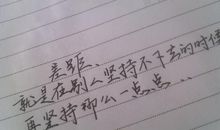 差距、
就是在别人坚持不下去的时候
再坚持那么一点点...